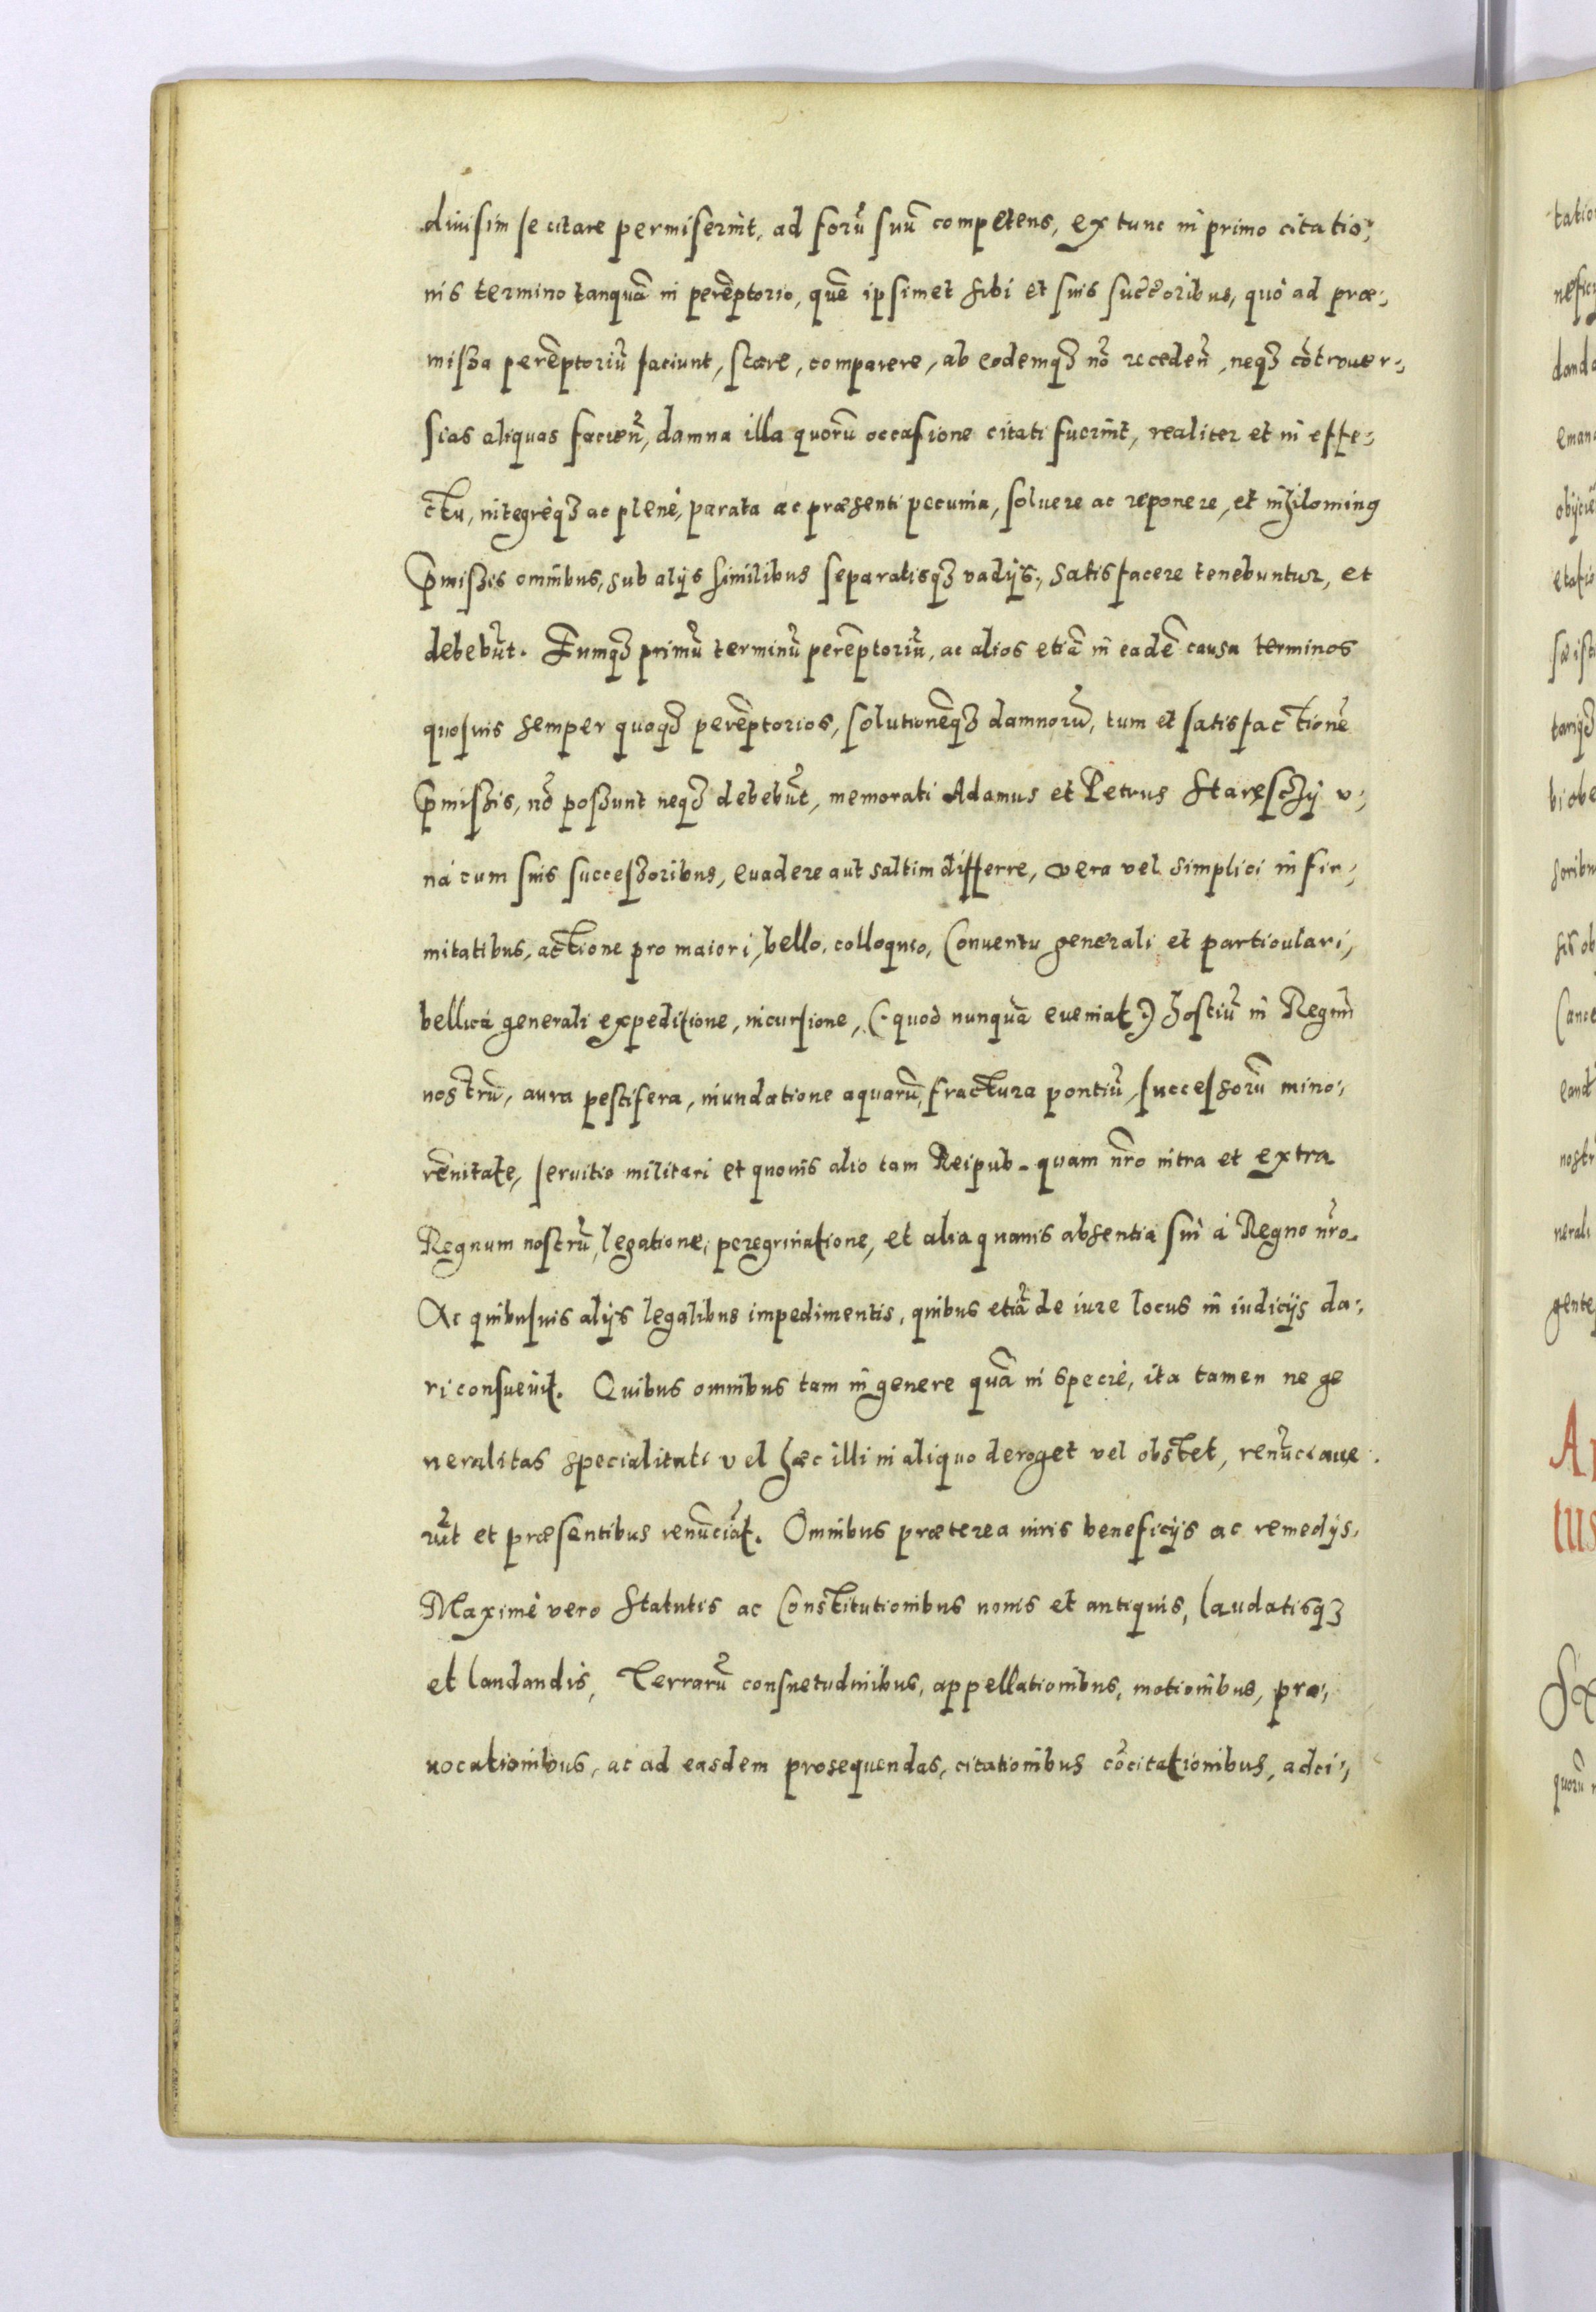 diuisim se citare permiserint, ad forũ suũ competens, ex tunc in primo citatio:,
nis termino tanquã in perẽptorio, quẽ ipsimet sibi et suis succ̃oribus, quò ad præ:,
missa perẽptoriũ faciunt, stare, comparere, ab eodemqȝ nõ receden̄, neqȝ cõtrouer:,
sias aliquas facien̄, damna illa quorũ occasione citati fuerint, realiter et in effe:,
ctu, integrèqȝ ac plenè, parata ac præsenti pecunia, soluere ac reponere, et nihilominꝰ
p̃missis omnibus, sub alijs similibus separatisqȝ vadijs, satisfacere tenebuntur, et
debebũt. Eumqȝ primũ terminũ perẽptoriũ, ac alios etiã in eadẽ causa terminos
quosuis semper quoqȝ perẽptorios, solutionẽqȝ damnorũ, tum et satisfactionẽ
p̃missis, nõ possunt neqȝ debebũt, memorati Adamus et Petrus Starzeschy v:,
nà cum suis successoribus, euadere aut saltim differre, vera vel simplici infir:,
mitatibus, actione pro maiori, bello, colloquio, Conuentu generali et particulari,
bellicà generali expeditione, incursione, (:quod nunquã eueniat:) hostiũ in Regnũ
nostrũ, aura pestifera, inundatione aquarũ, fractura pontiũ, successorũ mino:,
rẽnitate, seruitio militari et quouis alio tam Reipub. quam nr̃o intra et extra
Regnum nostrũ, legatione, peregrinatione, et alia quauis absentia sui à Regno nr̃o.
Ac quibusuis alijs legalibus impedimentis, quibus etiã de iure locus in iudicijs da:,
ri consueuit. Quibus omnibus tam in genere quã in specie, ita tamen ne ge
neralitas specialitati vel hæc illi in aliquo deroget vel obstet, renũciaue:
rũt et præsentibus renũciãt. Omnibus præterea iuris beneficijs ac remedijs,
Maximè vero Statutis ac Constitutionibus nouis et antiquis, laudatisqȝ
et laudandis, Terrarũ consuetudinibus, appellationibus, motionibus, pro:,
uocationibus, ac ad easdem prosequendas, citationibus cõcitationibus, adci:,